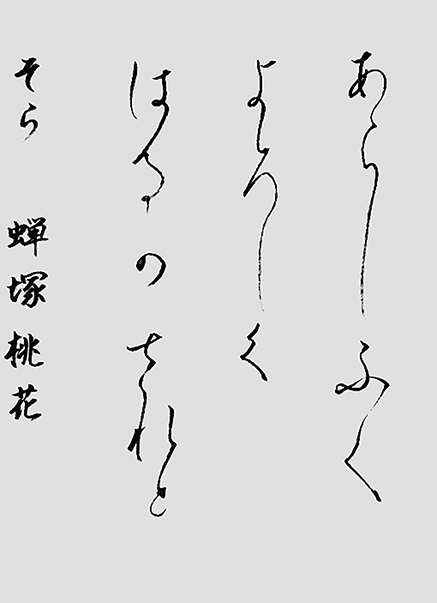 あらしふく
よろしく
はるの
そら 蝉塚桃花